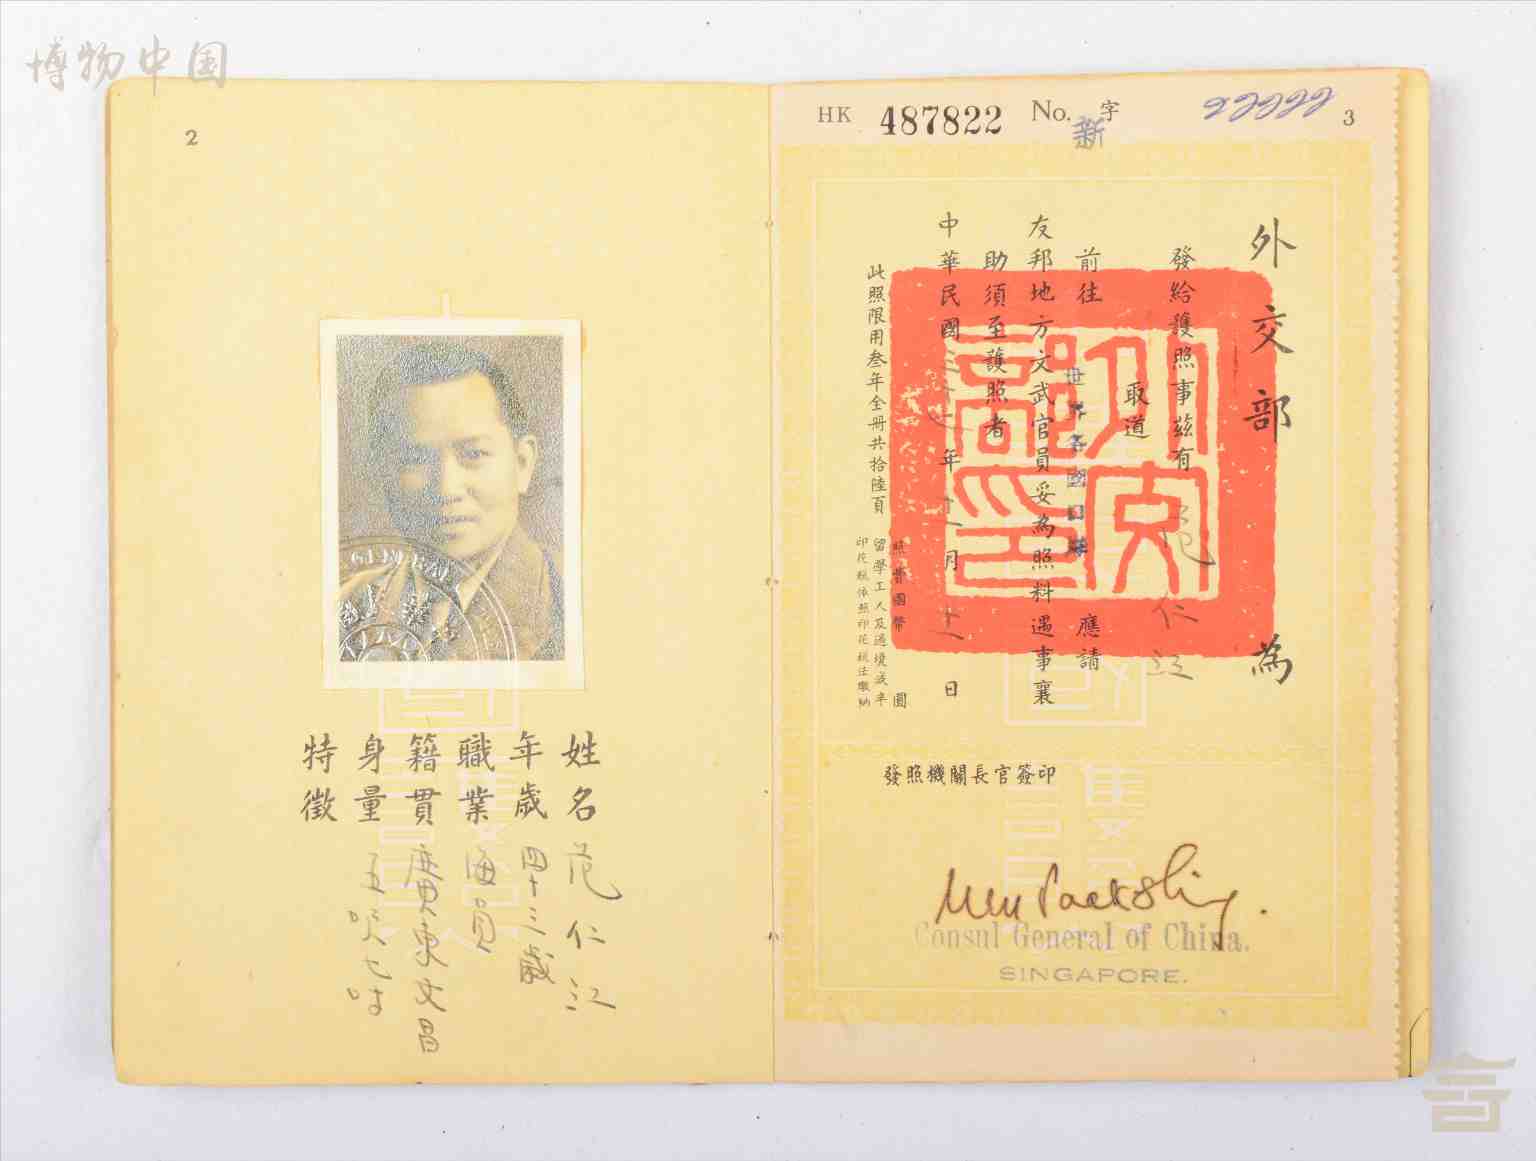 博物中国
2
姓名 范仁江
年歲 四十三歲
職業 海員
籍貫 廣東文昌
身量 五呎七吋
特徵
HK 487822 No. 新 字 22222 3
外交部 為
發給護照事茲有 范仁江
取道
前往 世界各國 應請
友邦地方文武官員妥為照料遇事襄
助須至護照者
中華民國三十七年十一月十一日
此照限用叁年全冊共拾陸頁
照費國幣 圓
留學工人及過境減半
印花稅依照印花稅法繳納
外交部印
發照機關長官簽印
Consul General of China.
SINGAPORE.